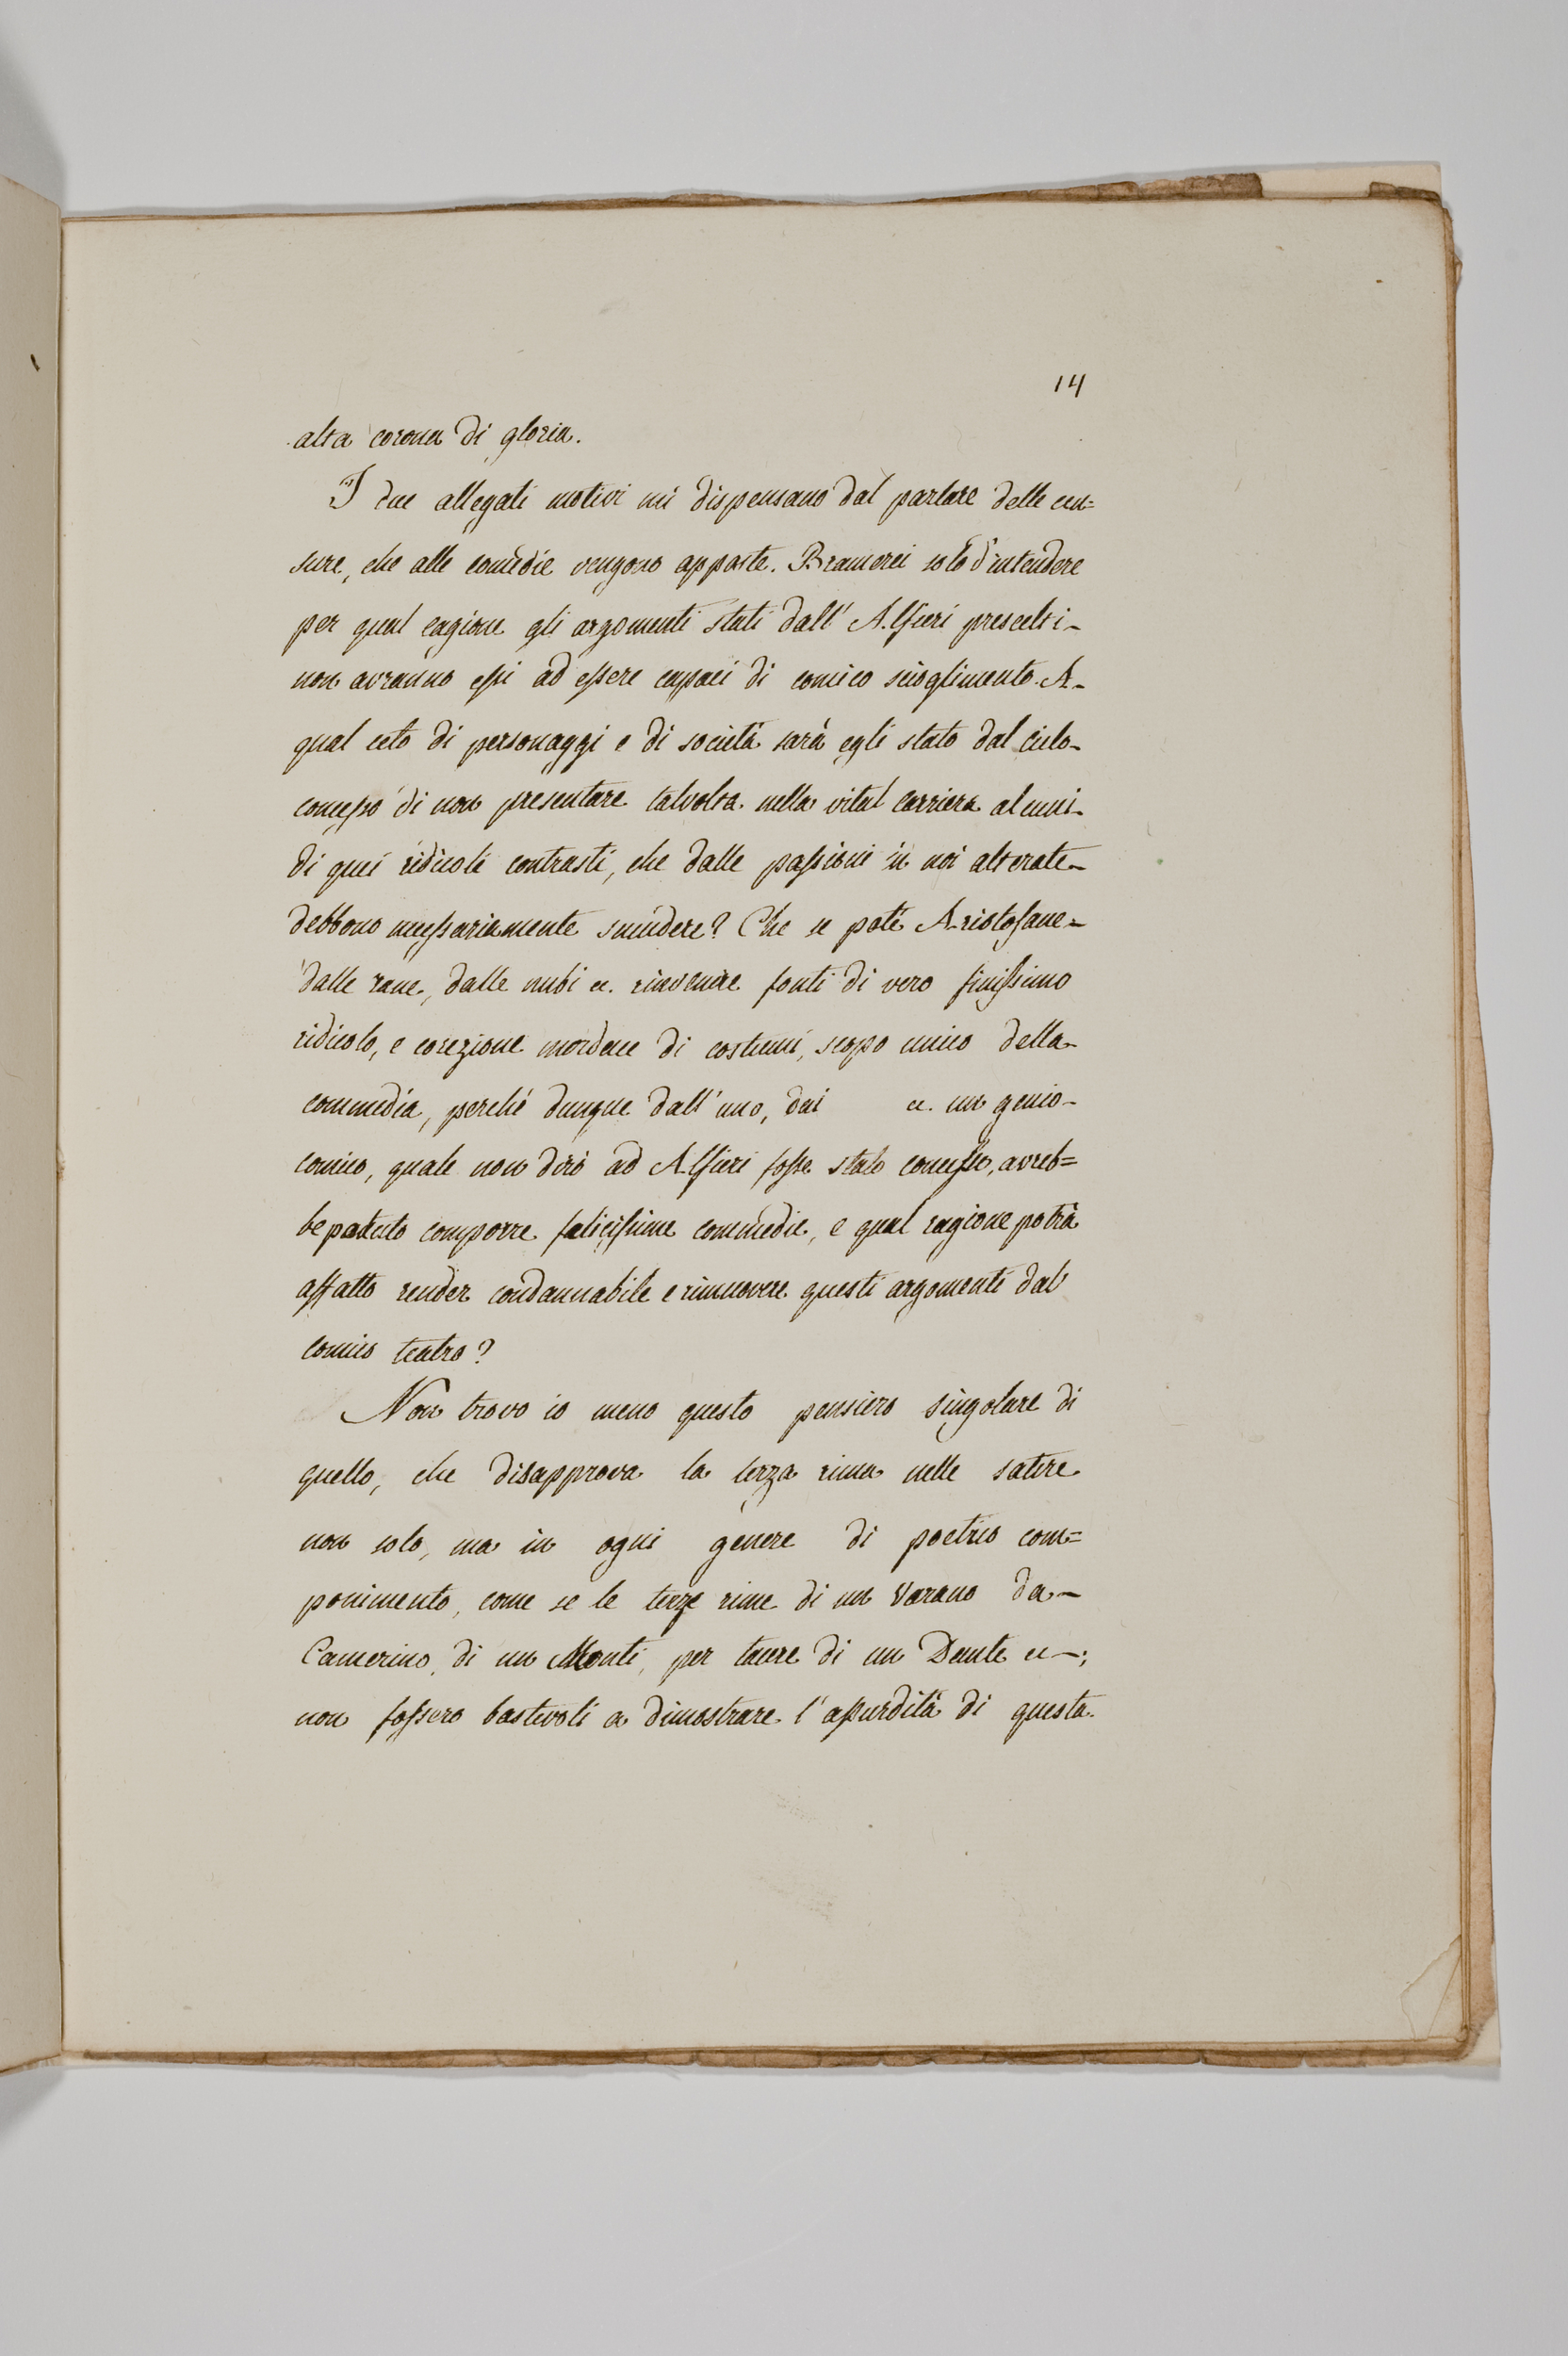 14
alta corona di gloria.
I due allegati motivi mi dispensano dal parlare delle cen=
sure, che alle comedie vengono apposte. Bramerei solo d'intendere
per qual cagione gli argomenti stati dall' Alfieri prescelti
non avranno essi ad essere capaci di comico scioglimento. A
qual ceto di personaggi e di società sarà egli stato dal cielo
concesso di non presentare talvolta nella vital carriera alcuni
di quei ridicoli contrasti, che dalle passioni in noi alterate
debbono necessariamente scendere? Che se poté Aristofane
dalle rane, dalle nubi ec. rinvenire fonti di vero finissimo
ridicolo, e corezione mordace di costumi, scopo unico della
commedia, perché dunque dall' uno, dai ec. un genio
comico, quale non dirò ad Alfieri fosse stato concesso, avreb=
be potuto comporre felicissime commedie, e qual ragione potrà
affatto render condannabile e rimuovere questi argomenti dal
comico teatro?
Non trovo io meno questo pensiero singolare di
quello, che disapprova la terza rima nelle satire
non solo, ma in ogni genere di poetico com=
ponimento, come se le terze rime di un Varano da
Camerino, di un Monti, per tacere di un Dante ec;
non fossero bastevoli a dimostrare l' assurdità di questa